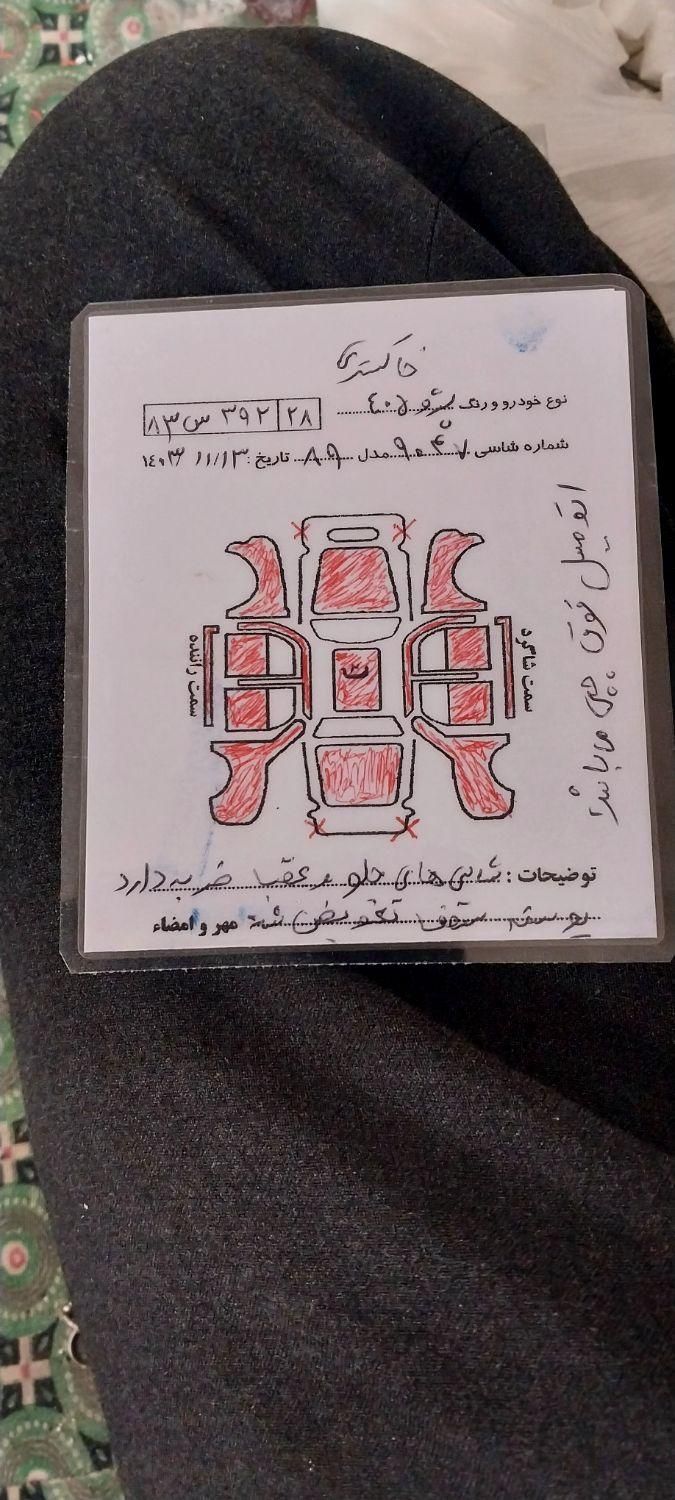 خاکستری
نوع خودرو و رنگ پژو ۴۰۵
۸۳ س ۳۹۲ ۲۸
شماره شاسی مدل ۸۹ تاریخ: ۱۴۰۳/۱۱/۱۳
سمت شاگرد
سمت راننده
ت
اتومبیل فوق چپی می باشد
توضیحات: شاسی های جلو و عقب ضربه دارد
پوسته سقف تعویض شده
مهر و امضاء